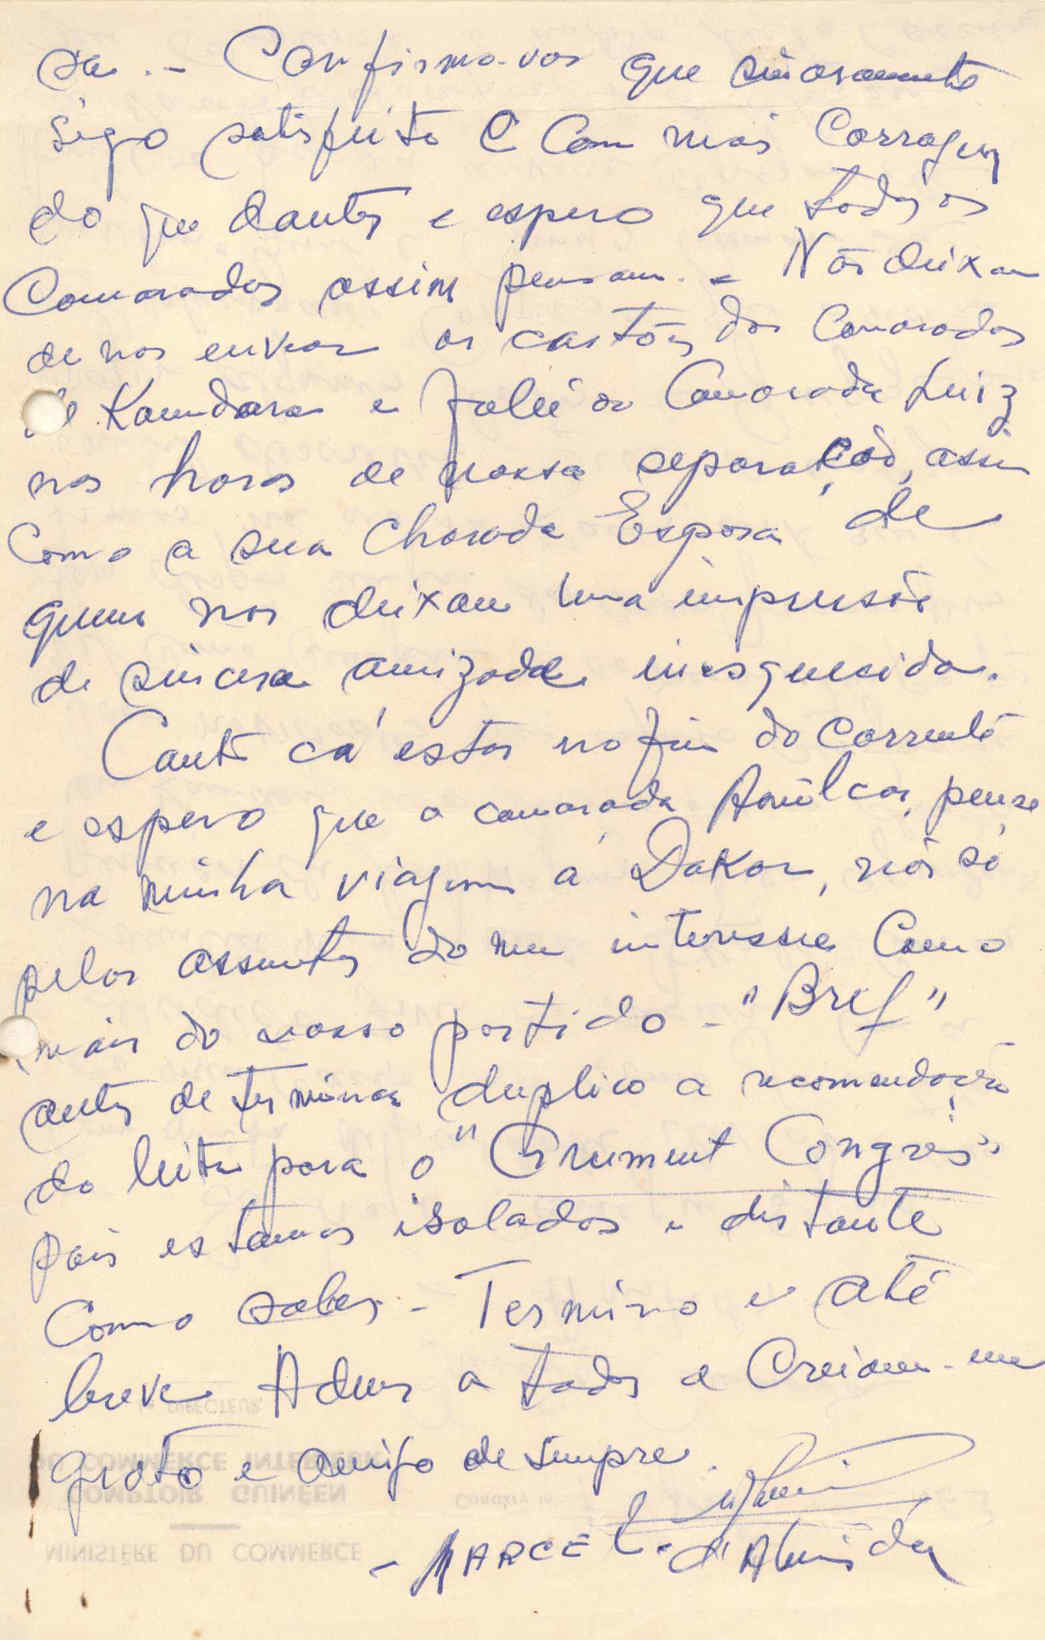 sa. - Confirmo-vos que sinceramente
sigo satisfeito e com mais corragem
do que dantes e espero que todos os
Camaradas assim pensam. - Não deixam
de nos enviar os cartões dos Camaradas
de Koundara e o Camarada Luiz
nas horas de nossa separação, assim
Como a sua Esposa, de
quem nos deixam uma impressão
de sincera amizade inesquecida.
cá estar no fim do corrente
e espero que o camarada Amilcar, pense
na minha viagem a Dakar, não só
pelos assuntos do meu interesse Como
mais do vosso partido - "Bref"
antes de terminar duplico a recomendação
do leite para o "Groument Congrés"
pois estamos isolados e distante
Como sabes - Termino e até
breve Adeus a todos e Creiam-me
grato e amigo de sempre.
- MARCEL. d'Almeida
LE DIRECTEUR
DU COMMERCE INTERIEUR
COMPTOIR GUINEEN
Conakry le
MINISTÈRE DU COMMERCE